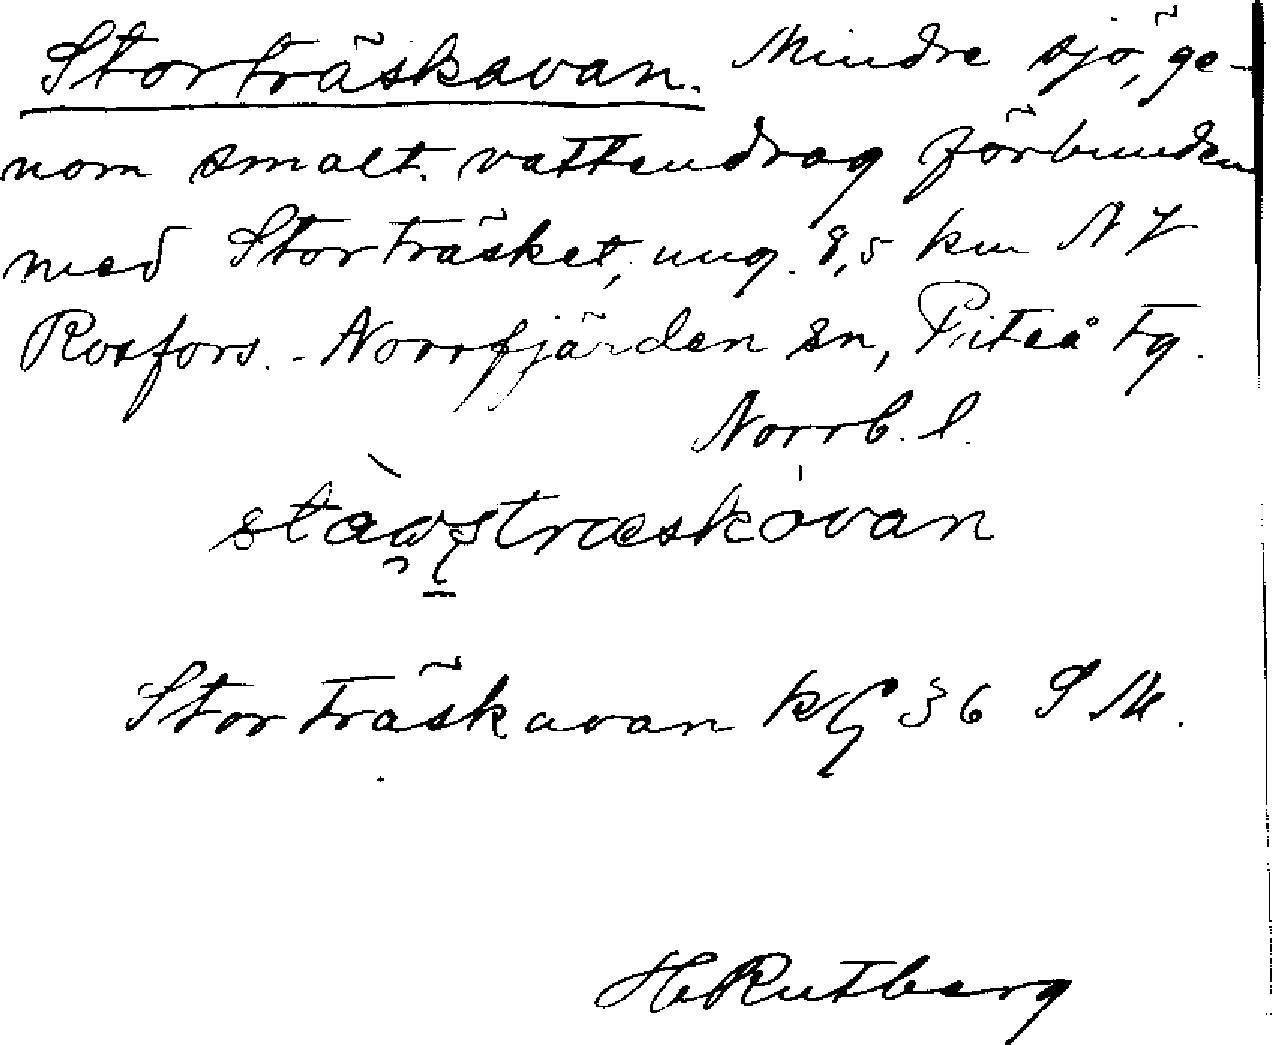 Storträskavan. Mindre sjö, ge-
nom smalt vattendrag förbunden
med Storträsket, ung. 8,5 km NV
Rosfors. - Norrfjärden sn, Piteå tg.
Norrb. l.
Storträskavan kg 36 S M.
H Rutberg